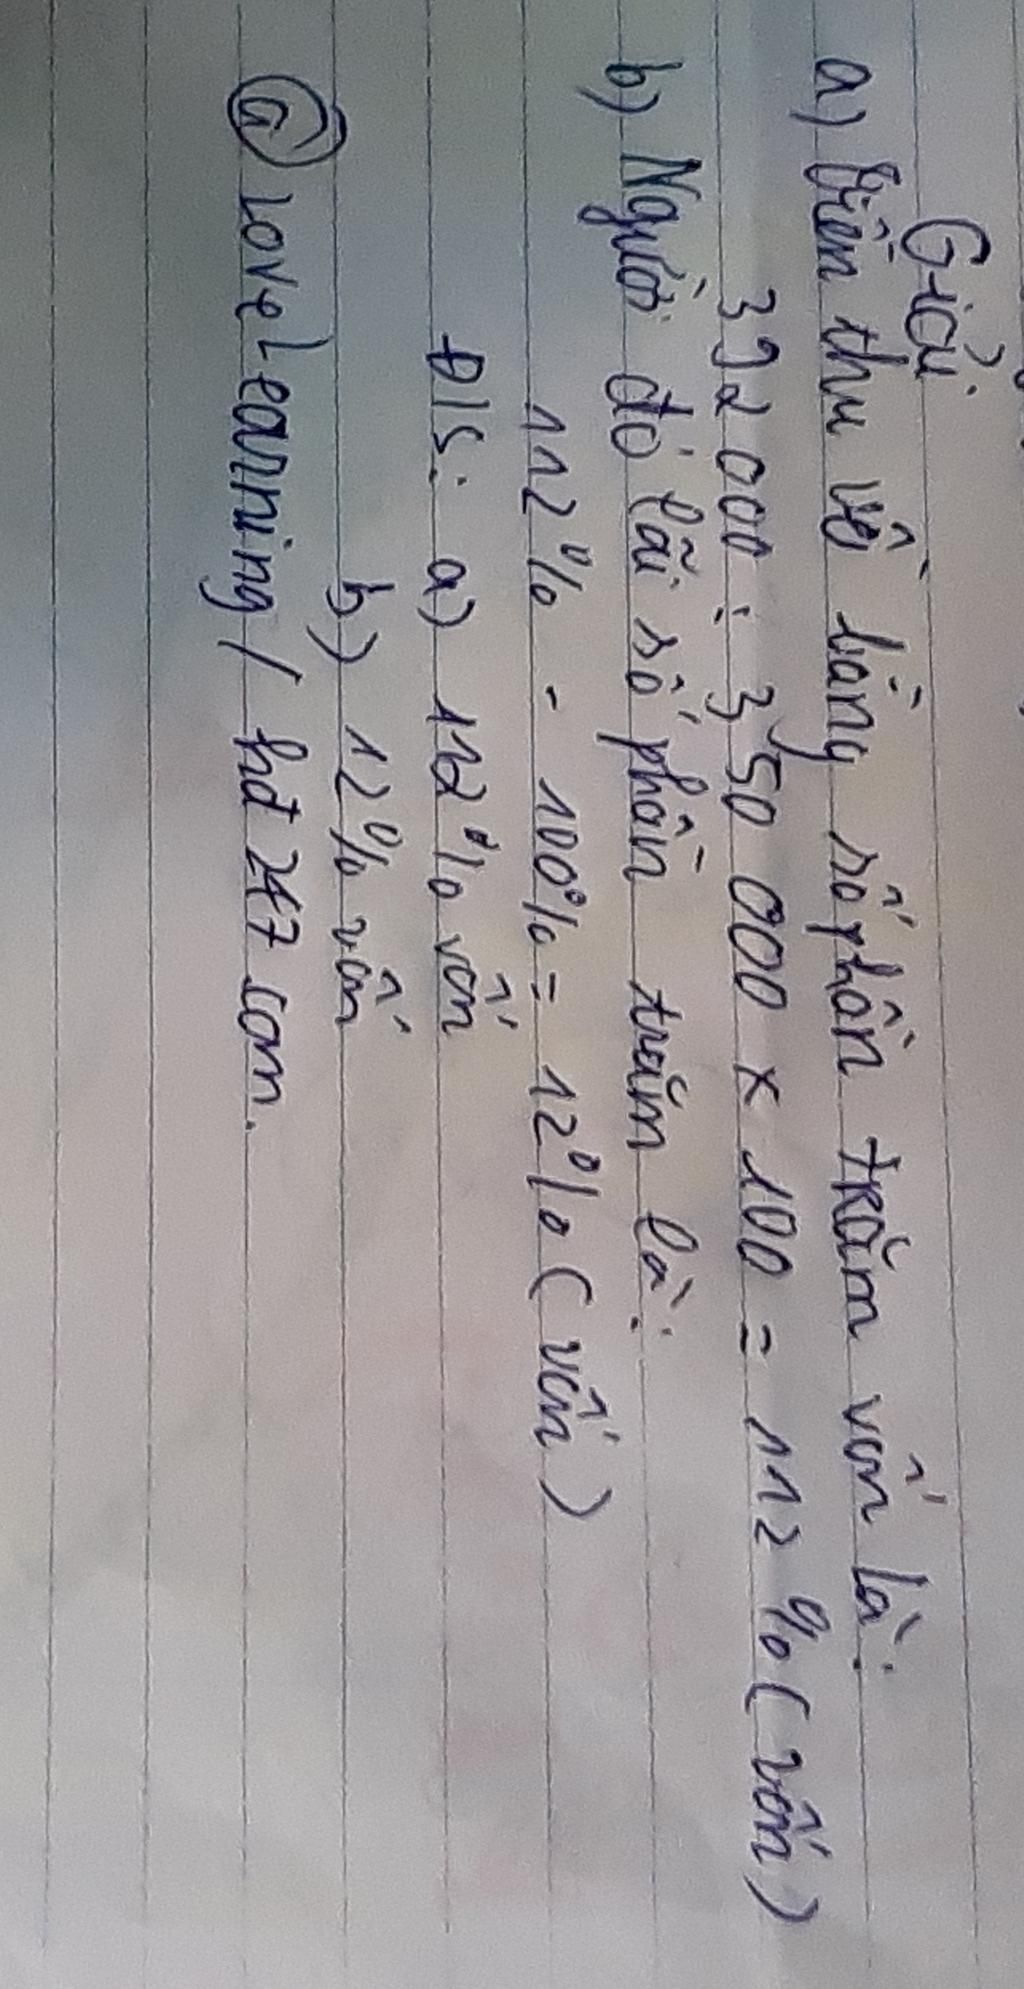 Giải
a) Tiền thu về bằng số phần trăm vốn là:
392 000 : 350 000 x 100 = 112 % (vốn)
b) Người đó lãi số phần trăm là:
112% - 100% = 12% (vốn)
Đ/S: a) 112% vốn
b) 12% vốn
@ loveLearning / hđ 247 com.